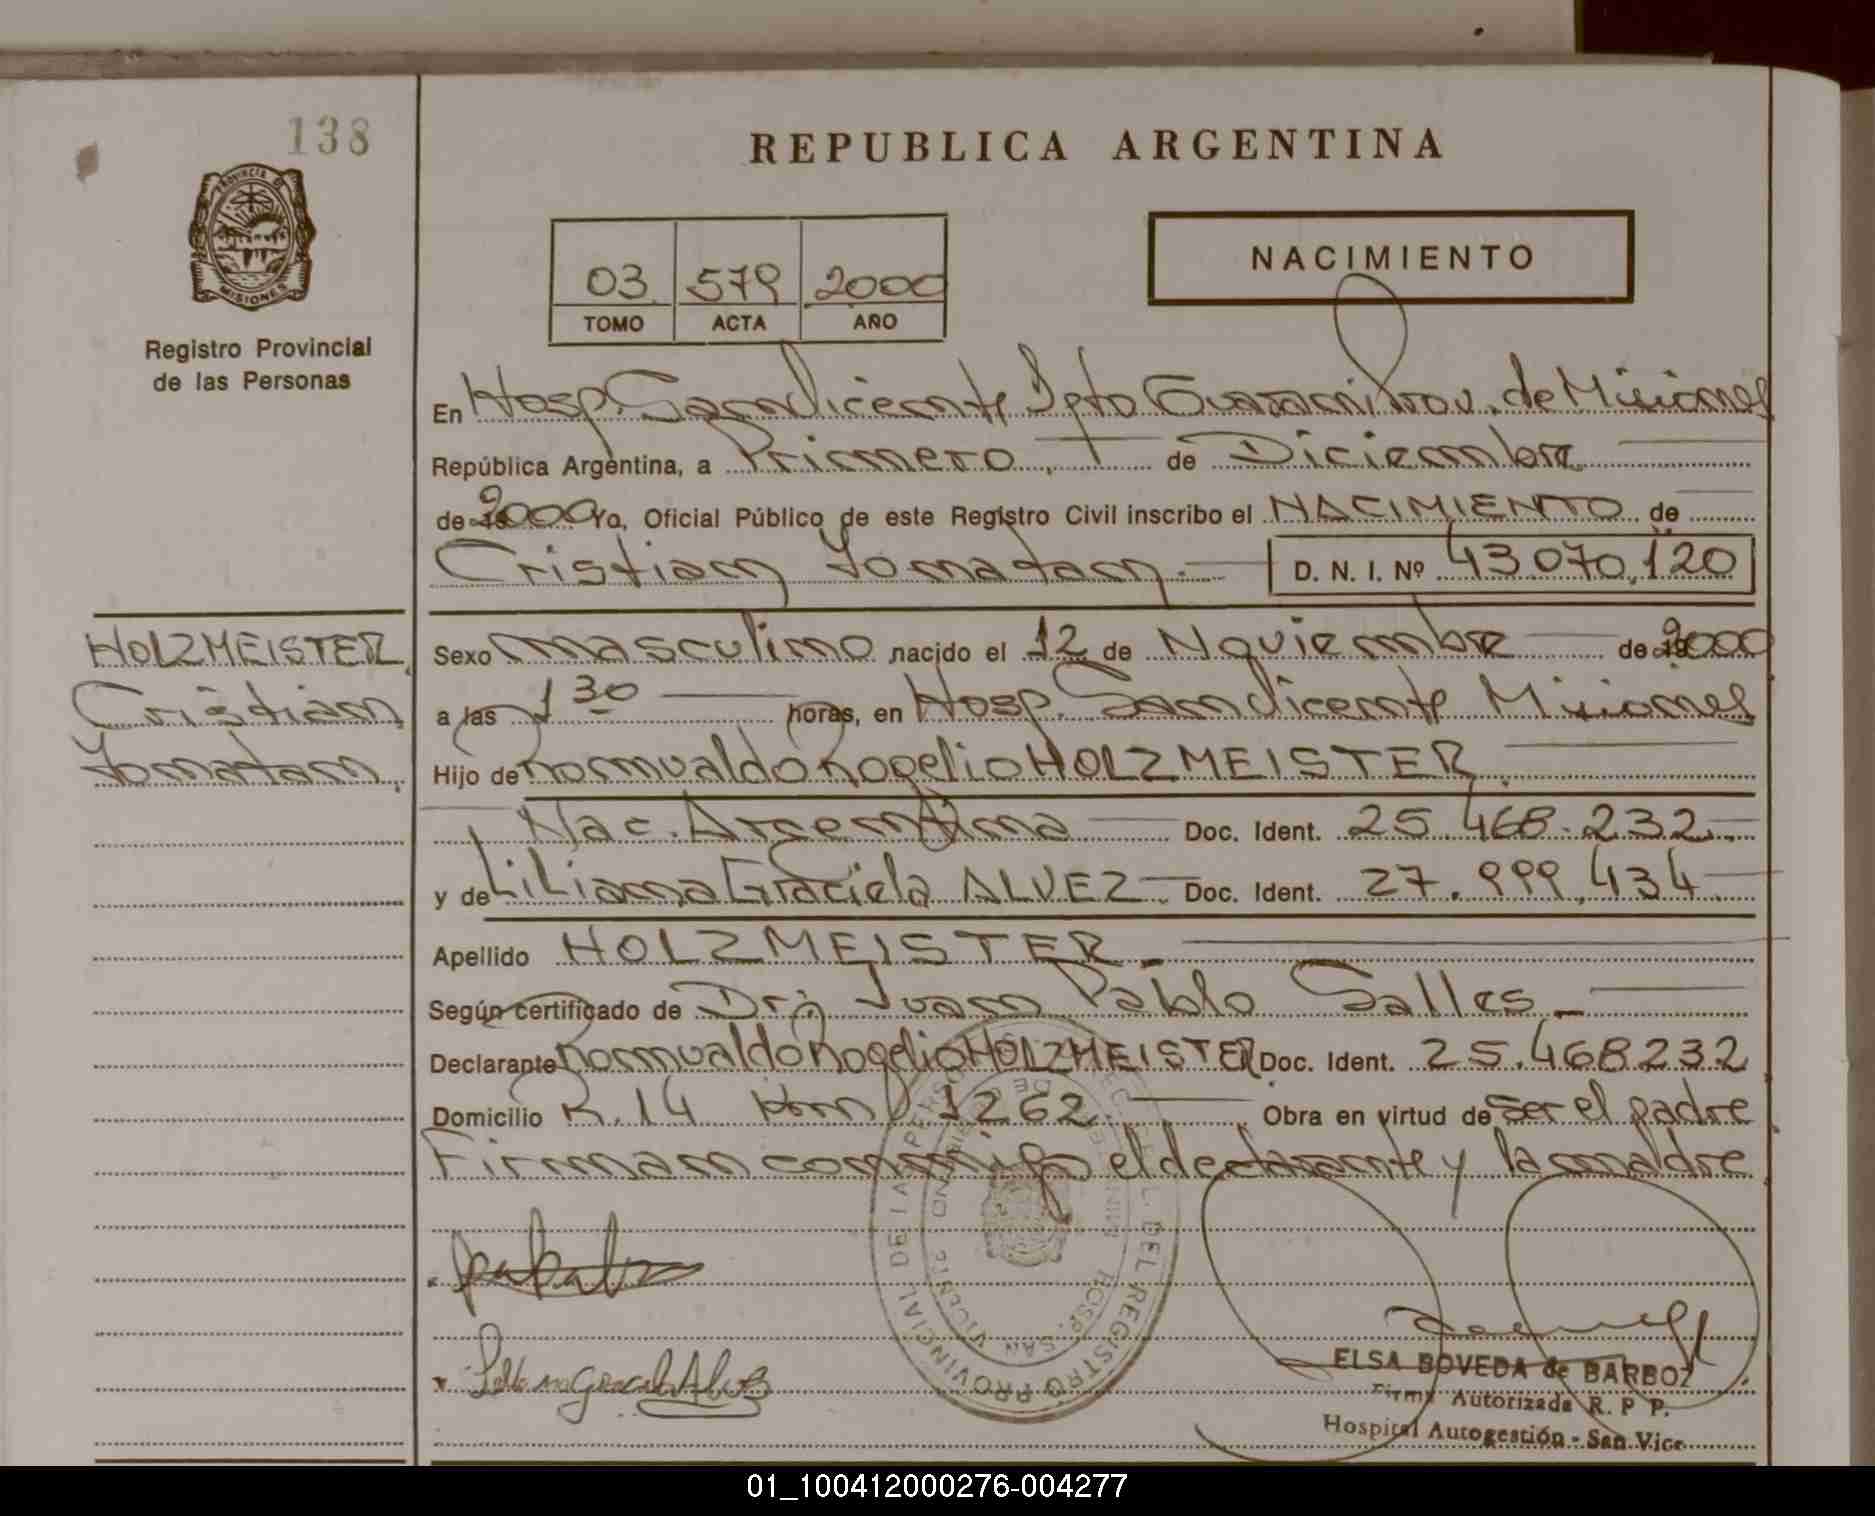 138
REPUBLICA ARGENTINA
PROVINCIA DE
MISIONES
Registro Provincial
de las Personas
03 579 2000
TOMO ACTA AÑO
NACIMIENTO
En Hosp. San Vicente Dpto Guarani Prov. de Misiones
República Argentina, a Primero de Diciembre
de 19 2000 Yo, Oficial Público de este Registro Civil inscribo el NACIMIENTO de
Cristian Yonatan D. N. I. Nº 43.070.120
HOLZMEISTER
Cristian
Yonatan
Sexo masculino nacido el 12 de Noviembre de 19 2000
a las 1 30 horas, en Hosp. San Vicente Misiones
Hijo de Romualdo Rogelio HOLZMEISTER
Nac. Argentina Doc. Ident. 25.468.232
y de Liliana Graciela ALVEZ Doc. Ident. 27.999.434
Apellido HOLZMEISTER
Según certificado de Dr. Juan Pablo Salles
Declarante Romualdo Rogelio HOLZMEISTER Doc. Ident. 25.468232
Domicilio R. 14 Km 1262 Obra en virtud de ser el padre
Firman conmigo el declarante y la madre
PROVINCIAL DE LAS PERSO
DEL REGISTRO PROVINCIAL
HOSP. SAN VICENTE
Liliana Graciela Alvez
ELSA BOVEDA de BARBOZ
Firma Autorizada R. P P.
Hospital Autogestión - San Vice
01_100412000276-004277